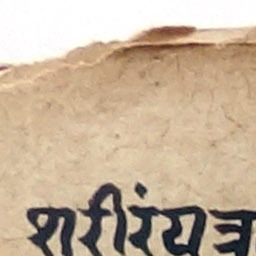 शरीरंयत्र